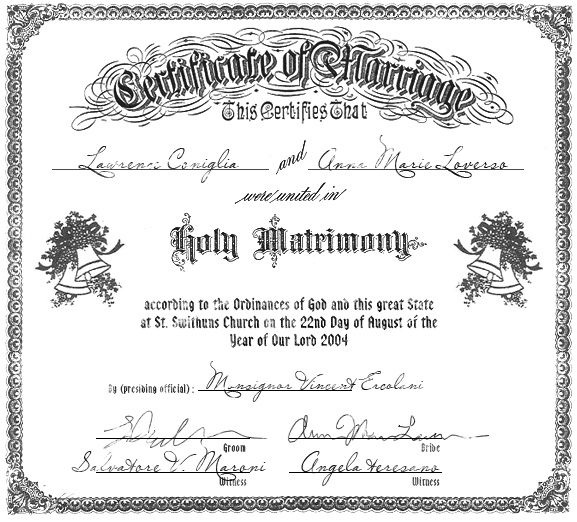 Certificate of Marriage
This Certifies That
Lawrence Coniglia and Anna Marie Loverso
were united in
Holy Matrimony
according to the Ordinances of God and this great State
at St. Swithuns Church on the 22nd Day of August of the
Year of Our Lord 2004
By (presiding official): Monsignor Vincent Ercolani
Groom Bride
Salvatore V. Maroni Angela Teresano
Witness Witness